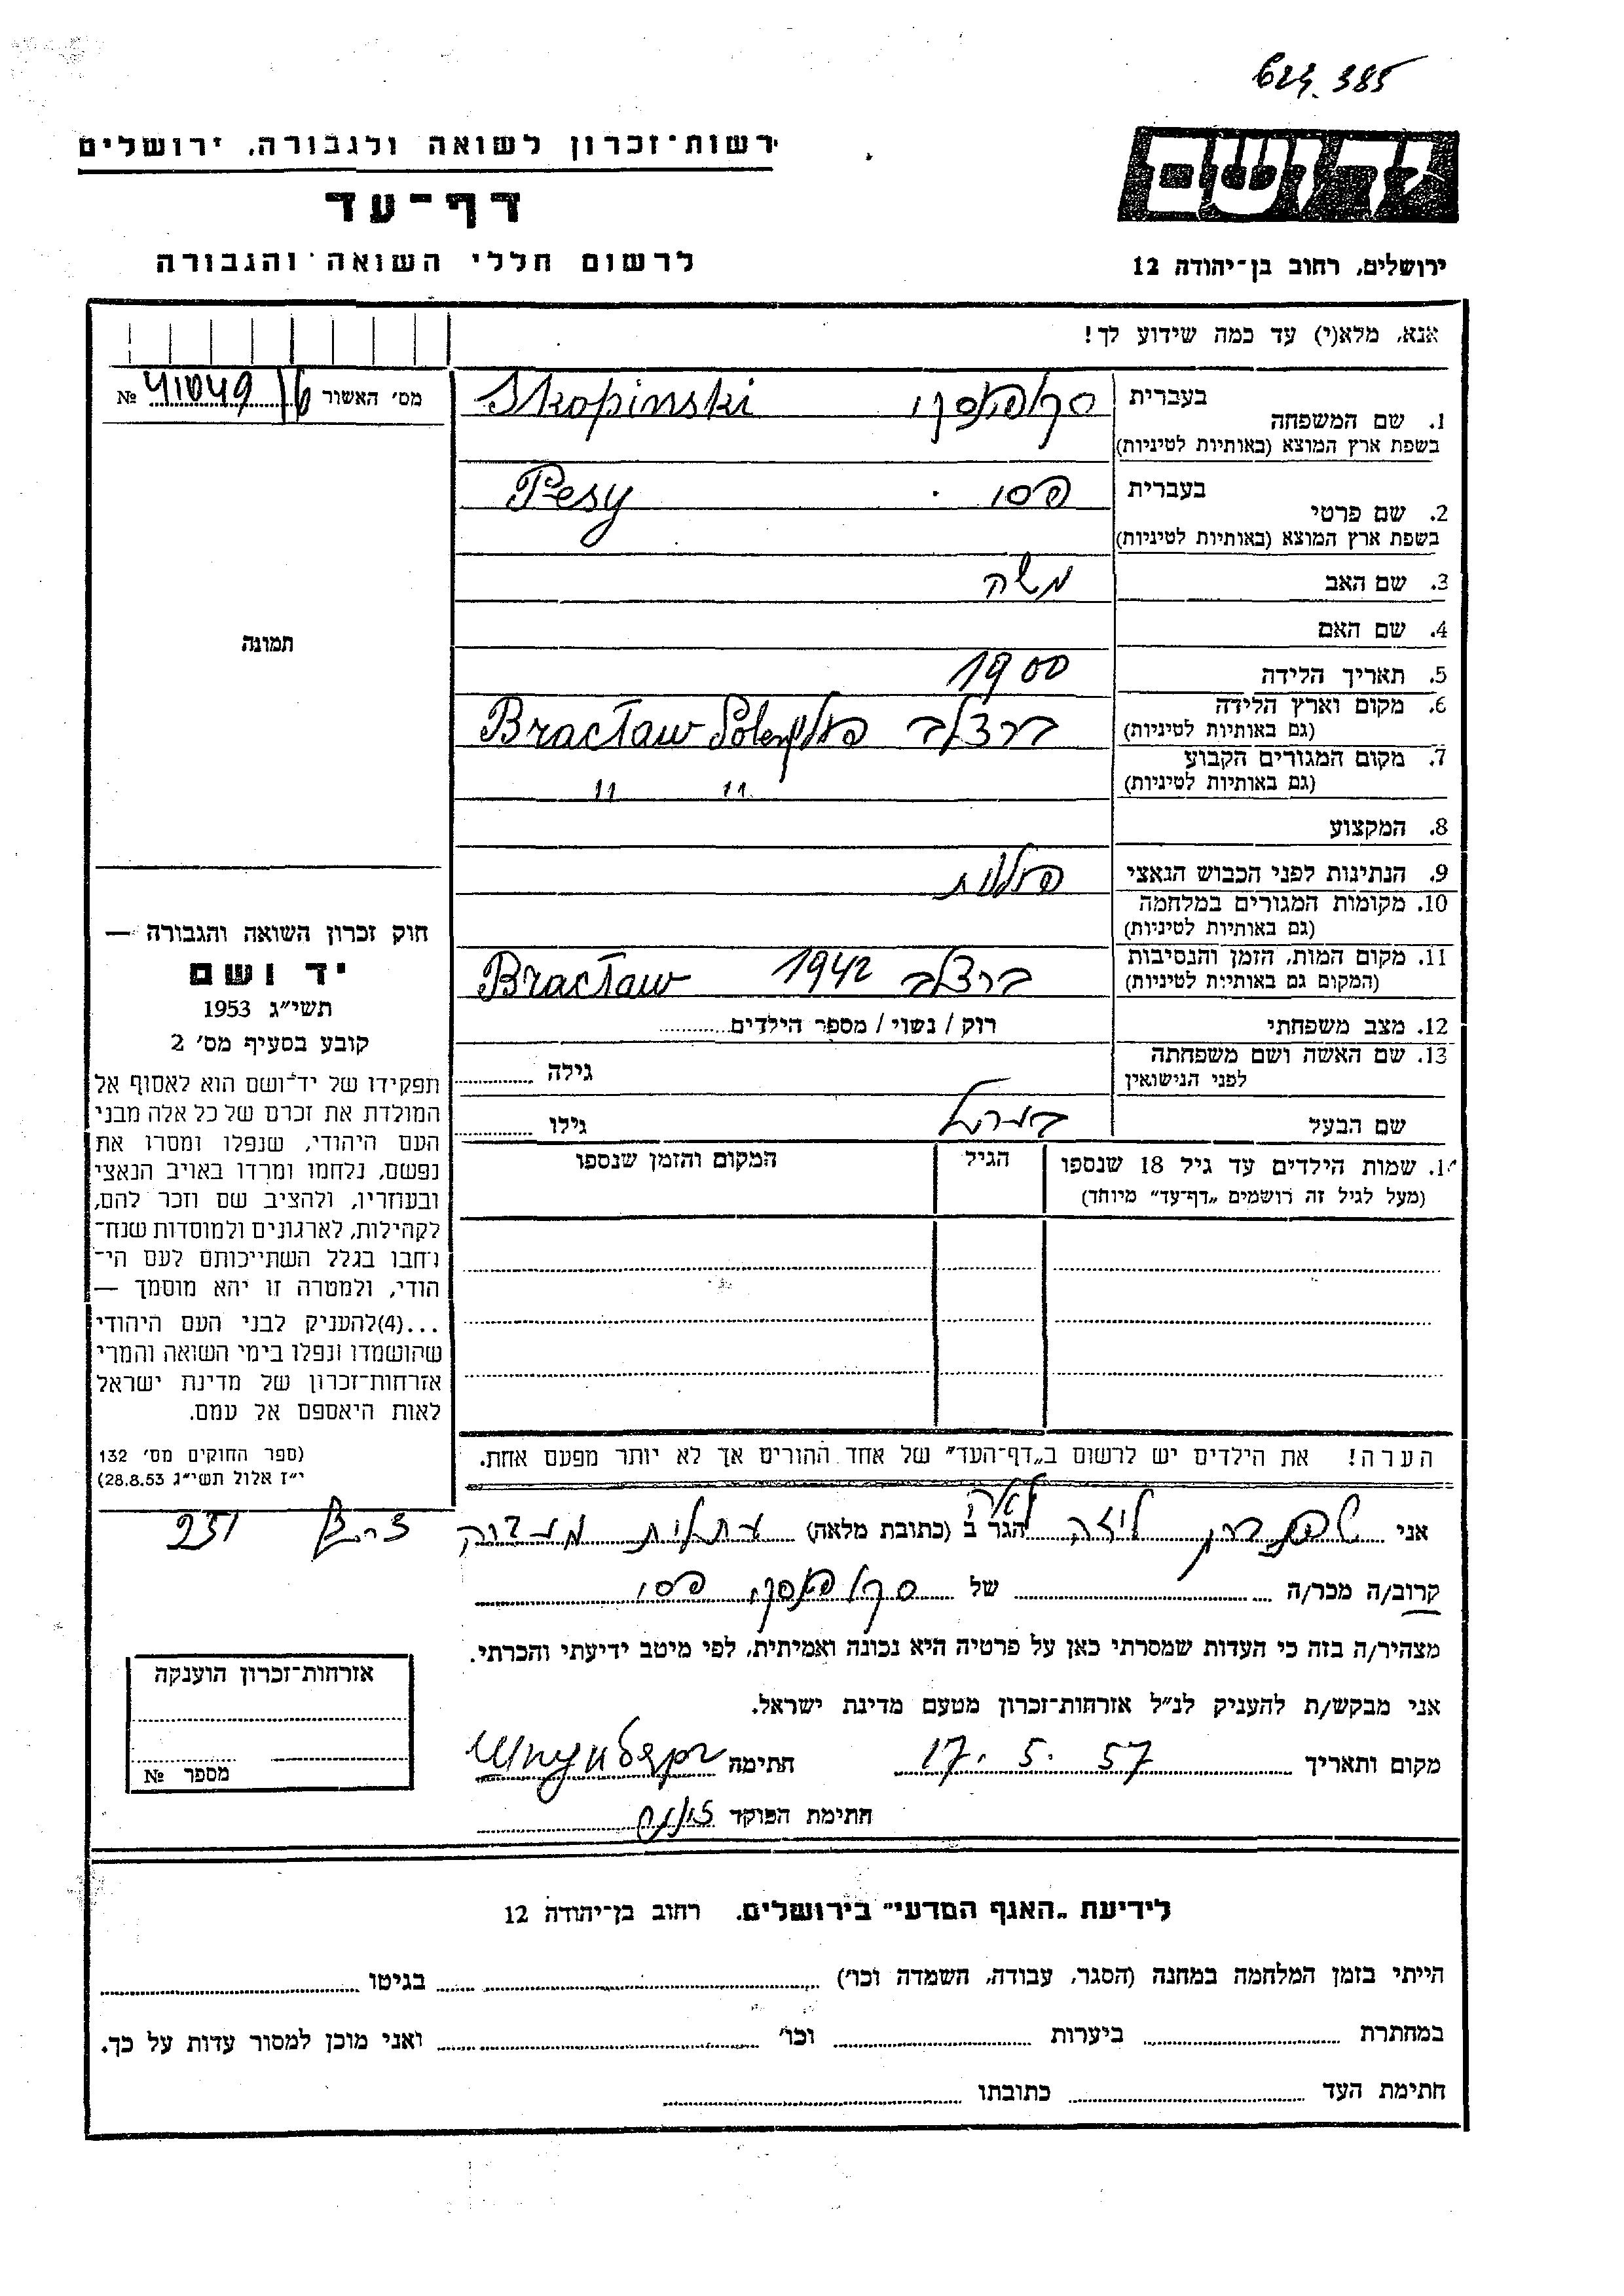 624.385
רשות־זכרון לשואה ולגבורה, ירושלים
דף־עד
לרשום חללי השואה והגבורה
יד ושם
ירושלים, רחוב בן־יהודה 12
אנא, מלא(י) עד כמה שידוע לך!
מס׳ האשור № 41049
1. שם המשפחה בעברית Skopinski
בשפת ארץ המוצא (באותיות לטיניות)
2. שם פרטי בעברית פסי Pesy
בשפת ארץ המוצא (באותיות לטיניות)
3. שם האב משה
4. שם האם
5. תאריך הלידה 1900
6. מקום וארץ הלידה ברצלב Bracław
(גם באותיות לטיניות)
7. מקום המגורים הקבוע 11 11
(גם באותיות לטיניות)
8. המקצוע
9. הנתינות לפני הכבוש הנאצי
10. מקומות המגורים במלחמה
(גם באותיות לטיניות)
11. מקום המות, הזמן והנסיבות ברצלב 1942 Bracław
(המקום גם באותיות לטיניות)
12. מצב משפחתי רוק / נשוי / מספר הילדים
13. שם האשה ושם משפחתה
לפני הנישואין גילה
שם הבעל גילו
14. שמות הילדים עד גיל 18 שנספו הגיל המקום והזמן שנספו
(מעל לגיל זה רושמים „דף־עד״ מיוחד)
הערה! את הילדים יש לרשום ב„דף־העד״ של אחד ההורים אך לא יותר מפעם אחת.
תמונה
חוק זכרון השואה והגבורה —
יד ושם
תשי״ג 1953
קובע בסעיף מס׳ 2
תפקידו של יד־ושם הוא לאסוף אל
המולדת את זכרם של כל אלה מבני
העם היהודי, שנפלו ומסרו את
נפשם, נלחמו ומרדו באויב הנאצי
ובעוזריו, ולהציב שם וזכר להם,
לקהילות, לארגונים ולמוסדות שנח־
רחבו בגלל השתייכותם לעם הי־
הודי, ולמטרה זו יהא מוסמך —
...(4)להעניק לבני העם היהודי
שהושמדו ונפלו בימי השואה והמרי
אזרחות־זכרון של מדינת ישראל
לאות היאספם אל עמם.
(ספר החוקים מס׳ 132
י״ז אלול תשי״ג 28.8.53)
אני ליזה לאה הגר ב (כתובת מלאה) עתלית צריף 231
קרוב/ה מכר/ה של פסי
מצהיר/ה בזה כי העדות שמסרתי כאן על פרטיה היא נכונה ואמיתית, לפי מיטב ידיעתי והכרתי.
אני מבקש/ת להעניק לנ״ל אזרחות־זכרון מטעם מדינת ישראל.
מקום ותאריך 17. 5. 57 חתימה
חתימת הפוקד
אזרחות־זכרון הוענקה
מספר №
לידיעת „האגף המדעי״ בירושלים, רחוב בן־יהודה 12
הייתי בזמן המלחמה במחנה (הסגר, עבודה, השמדה וכו׳) בגיטו
במחתרת ביערות וכו׳ ואני מוכן למסור עדות על כך.
חתימת העד כתובתו